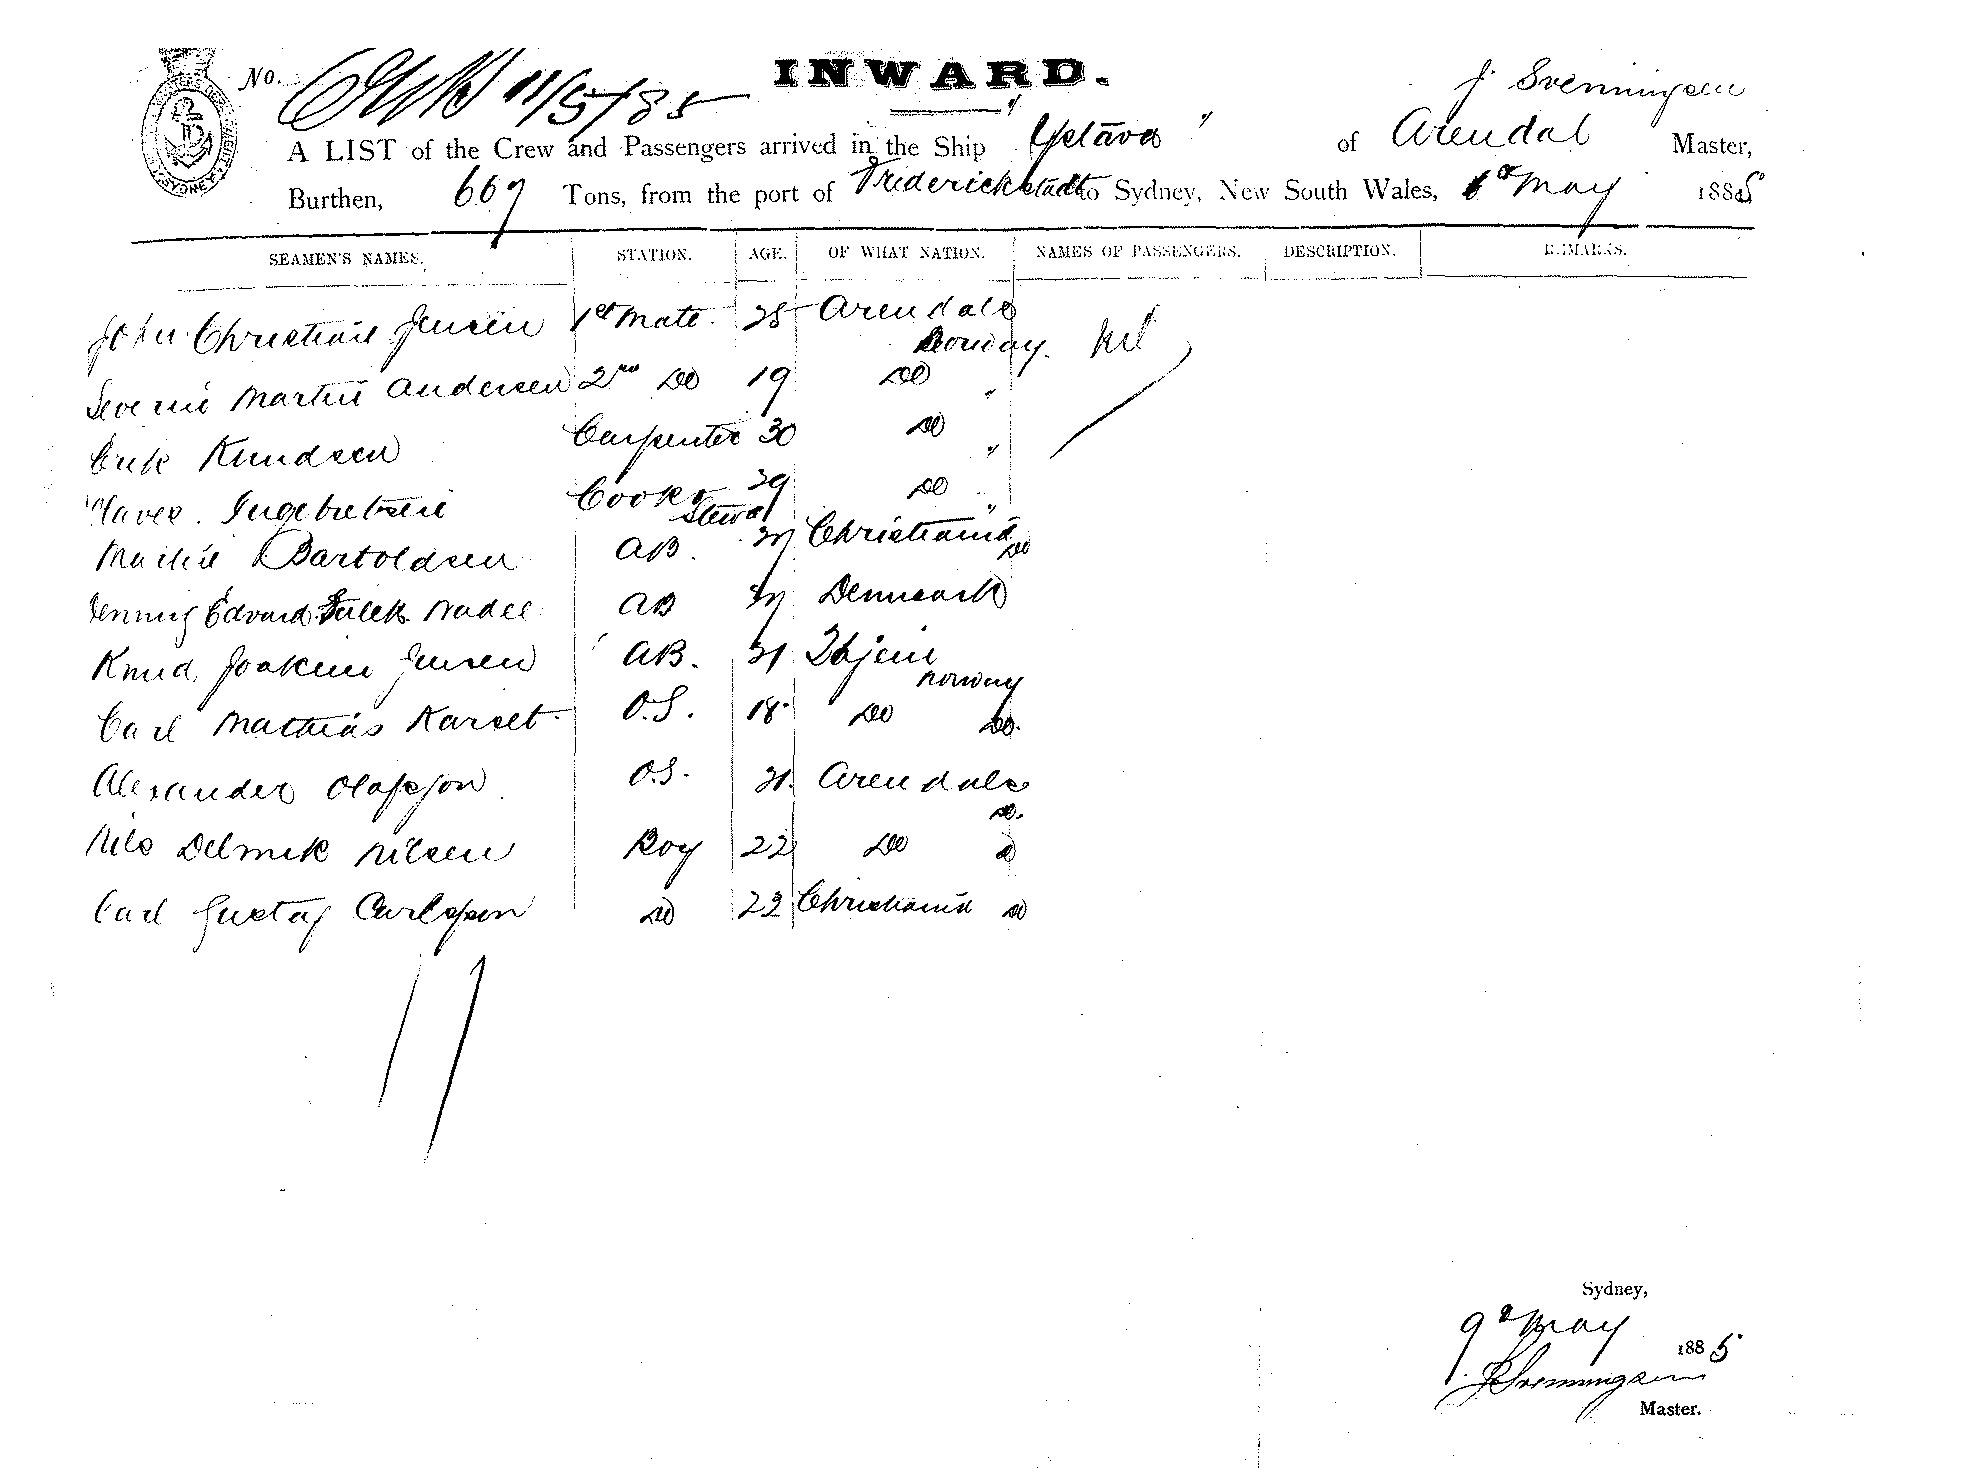 No. 11/5/85
INWARD.
J. Svenningsen
A LIST of the Crew and Passengers arrived in the Ship " Ystava " of Arendal Master,
Burthen, 667 Tons, from the port of Friderickstadt to Sydney, New South Wales, May 1885
SEAMEN'S NAMES. STATION. AGE. OF WHAT NATION. NAMES OF PASSENGERS. DESCRIPTION. REMARKS.
John Christian Jensen 1st Mate. Arendale Norway. Nil
Severin Martin Andersen 2nd Do 19 Do "
Erik Knudsen Carpenter 30 Do "
Ingebretsen Cook & Stewd 29 Do "
Martin Bartoldsen AB. Christiania Do
Edvard Nadel AB Denmark
Knud Joakim Jensen AB. Norway
Carl Mathias Karset O.S. 18 Do Do.
Alexander Olafsson O.S. Arendale Do.
Nils Delmek Nilsen Boy 22 Do Do
Carl Gustaf Carlsson Do 22 Christiania Do
Sydney,
9th May 1885
J. Svenningsen
Master.